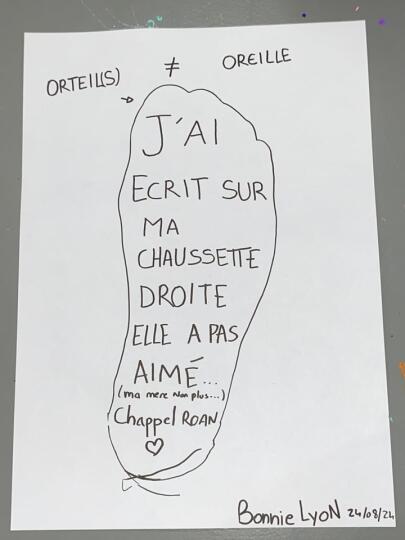 ORTEIL(S) ≠ OREILLE
J'AI
ECRIT SUR
MA
CHAUSSETTE
DROITE
ELLE A PAS
AIMÉ...
(ma mere Non plus...)
Chappel ROAN
♡
Bonnie LyoN 24/08/24